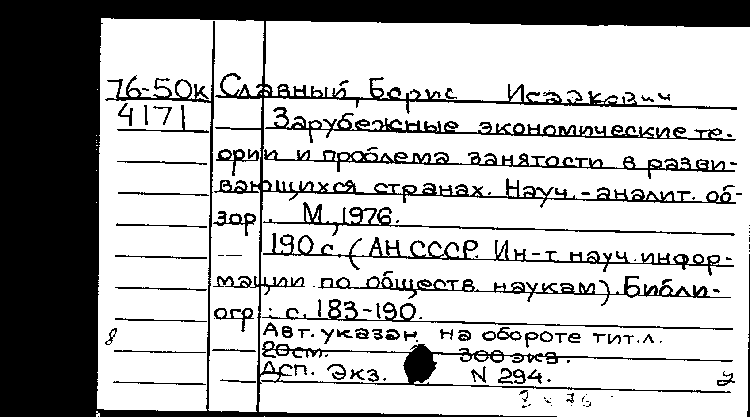 76-50к Славный, Борис Исаакович
4171 Зарубежные экономические те-
ории и проблема занятости в разви-
вающихся странах. Науч.-аналит. об-
зор. М., 1976.
190 с. (АН СССР. Ин-т науч. инфор-
мации по обществ. наукам). Библи-
огр.: с. 183-190.
8 Авт. указан на обороте тит. л.
20см. 300 экз.
Дсп. Экз. N 294. 2